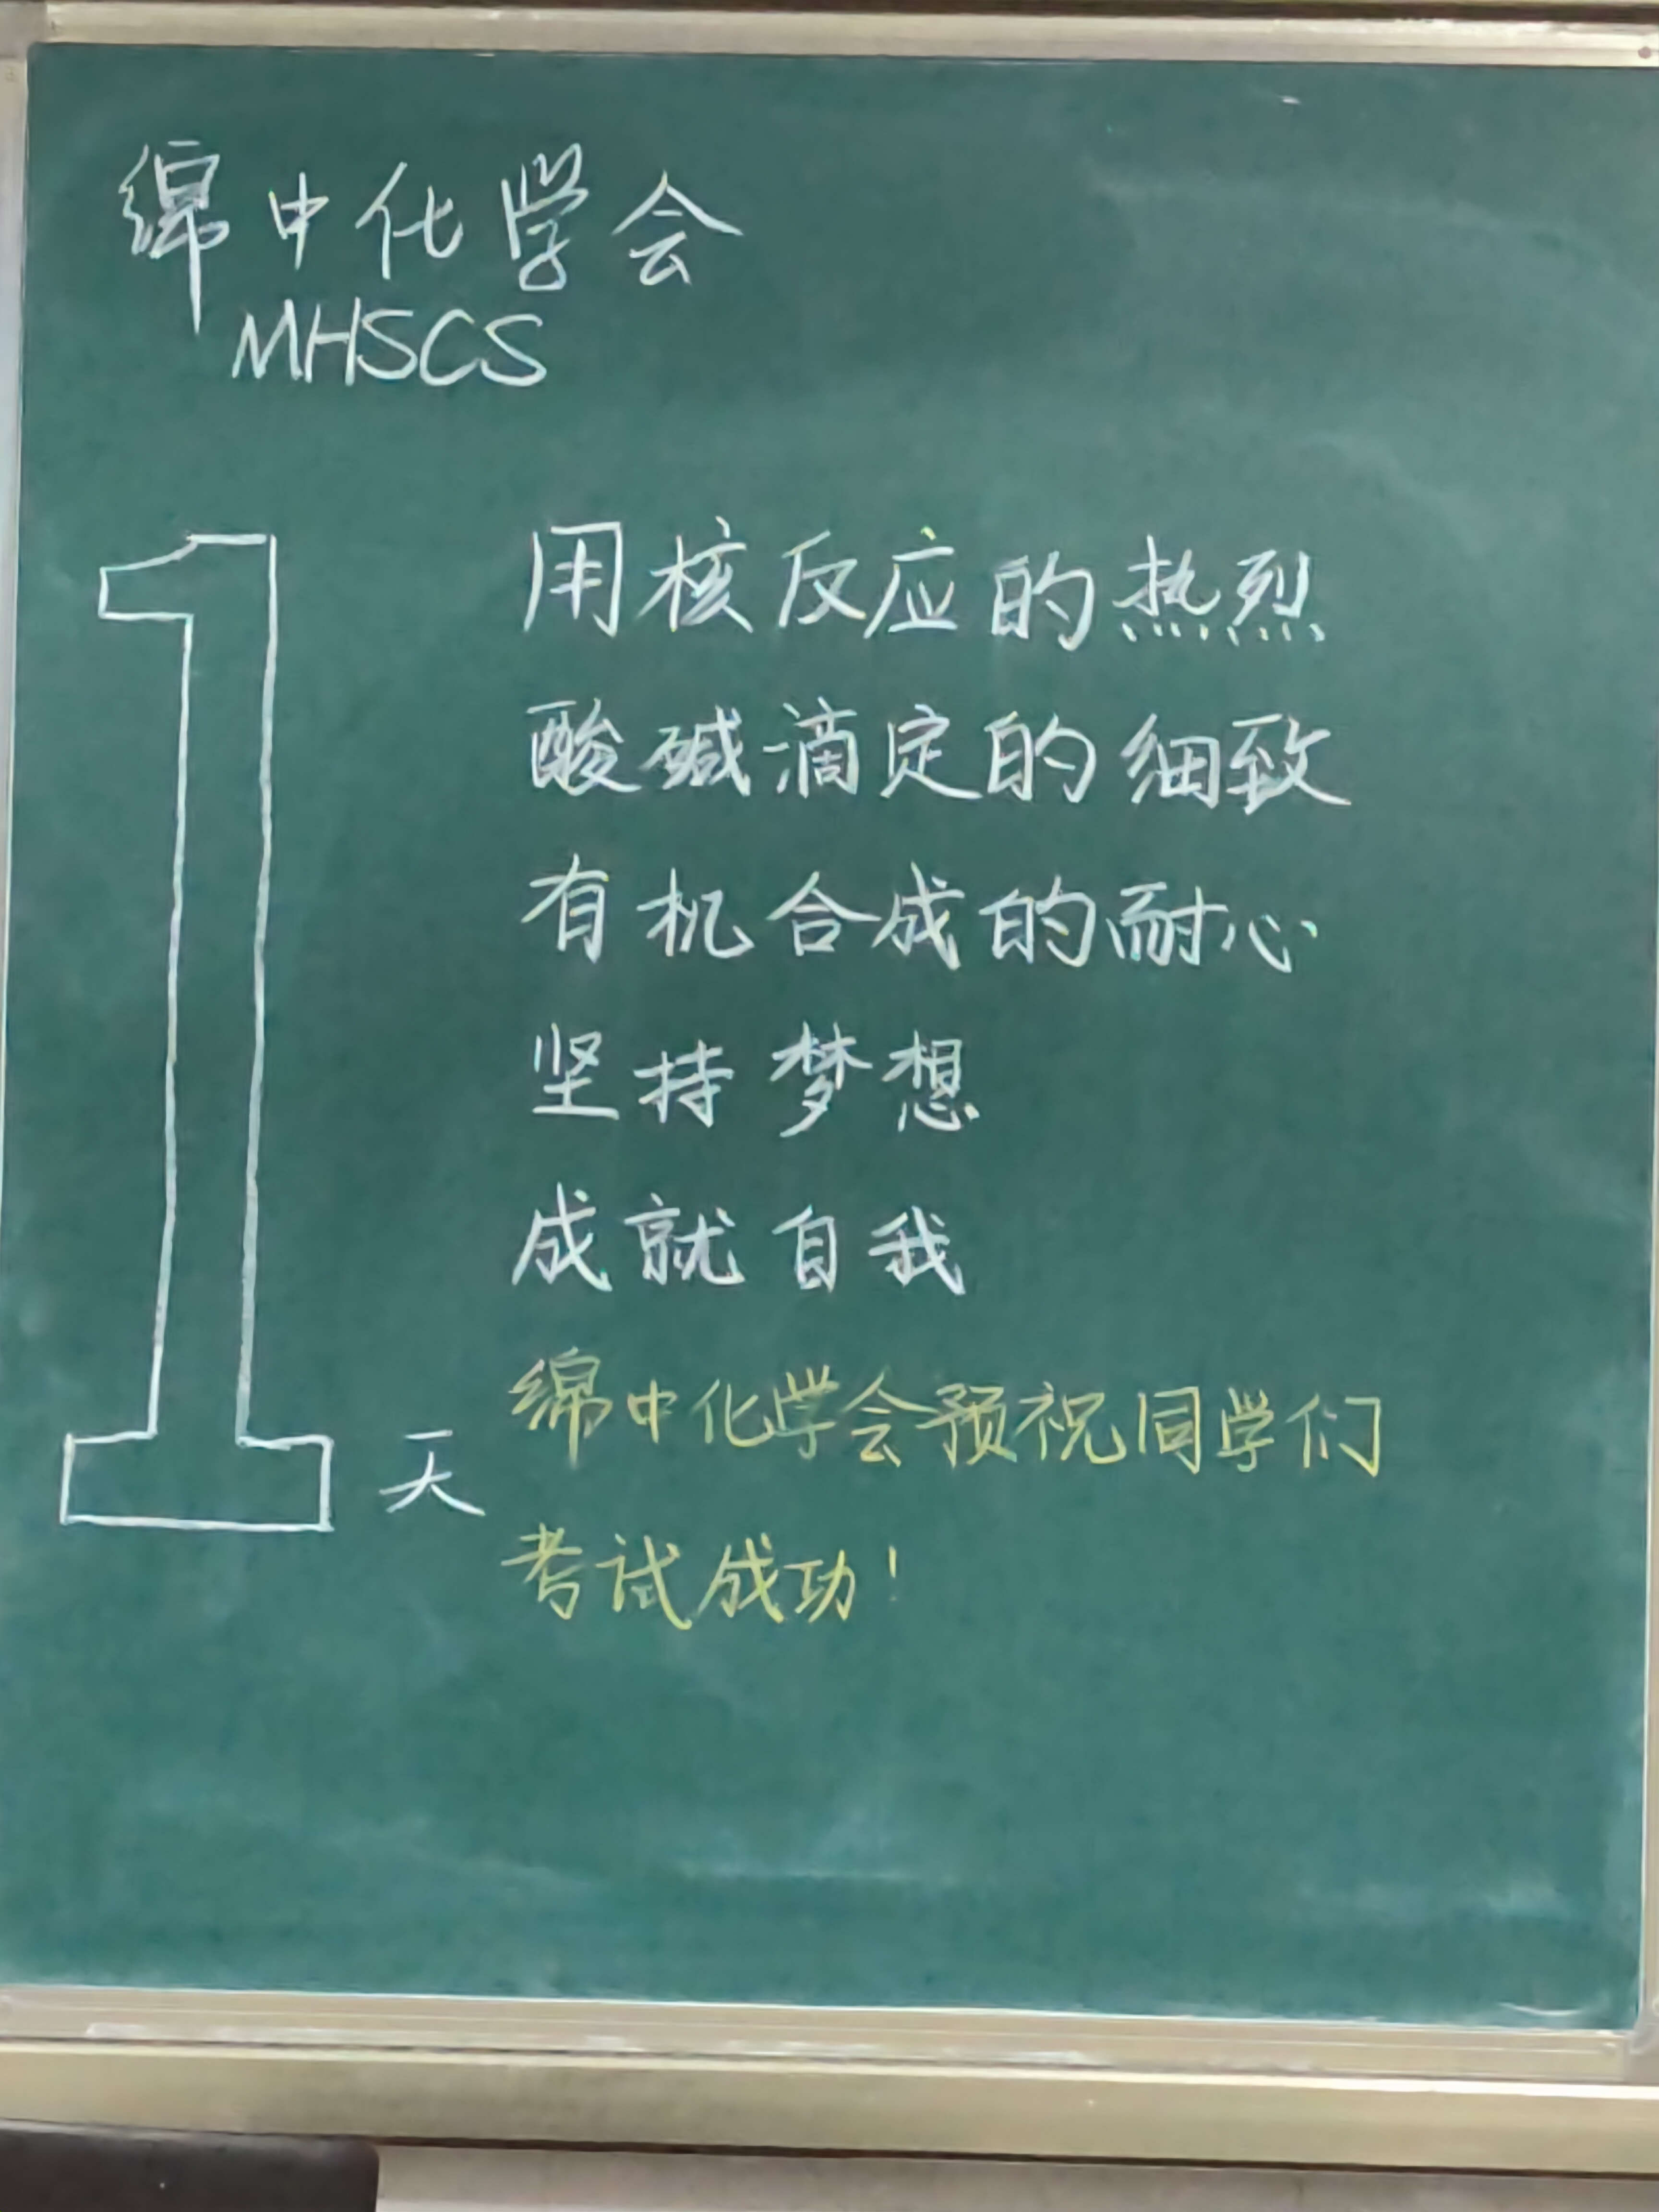 绵中化学会
MHSCS
1天
用核反应的热烈
酸碱滴定的细致
有机合成的耐心
坚持梦想
成就自我
绵中化学会预祝同学们
考试成功！